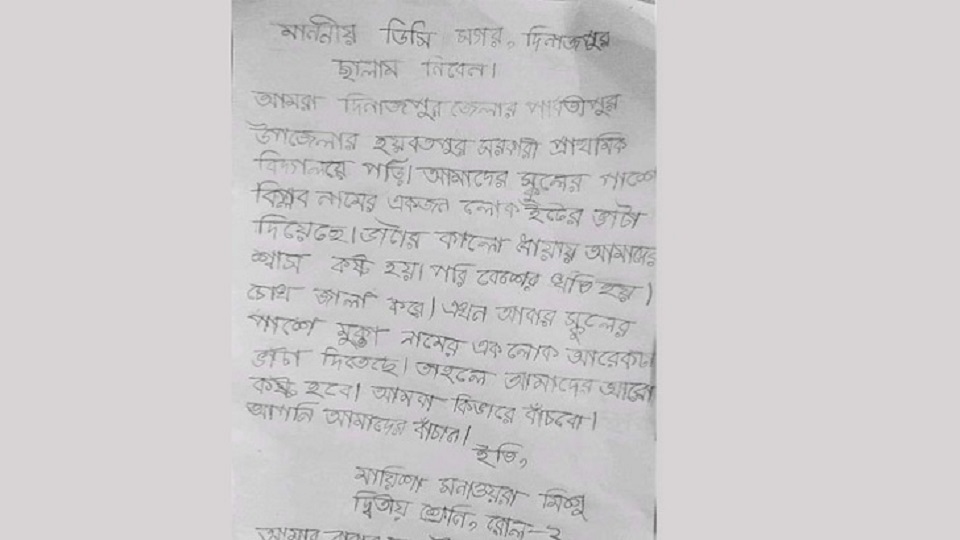 মাননীয় ডিসি সগর, দিনাজপুর
ছালাম নিবেন।
আমরা দিনাজপুর জেলার পার্বতীপুর
উপজেলার হয়বতপুর সরকারী প্রাথমিক
বিদ্যালয়ে পড়ি। আমাদের স্কুলের পাশে
বিপ্লব নামের একজন লোক ইটের ভাটা
দিয়েছে। ভাটার কালো ধোয়ায় আমাদের
শ্বাস কষ্ট হয়। পরি বেশের ক্ষতি হয়।
চোখ জালা করে। এখন আবার স্কুলের
পাশে মুক্তা নামের এক লোক আরেকটা
ভাটা দিবতছে। তাহলে আমাদের আরো
কষ্ট হবে। আমরা কিভাবে বাঁচবো।
আপনি আমাদের বাঁচান।
ইতি,
মায়িশা মনাওয়ারা মিশু
দ্বিতীয় শ্রেনি, রোল-২
আমার বাবার